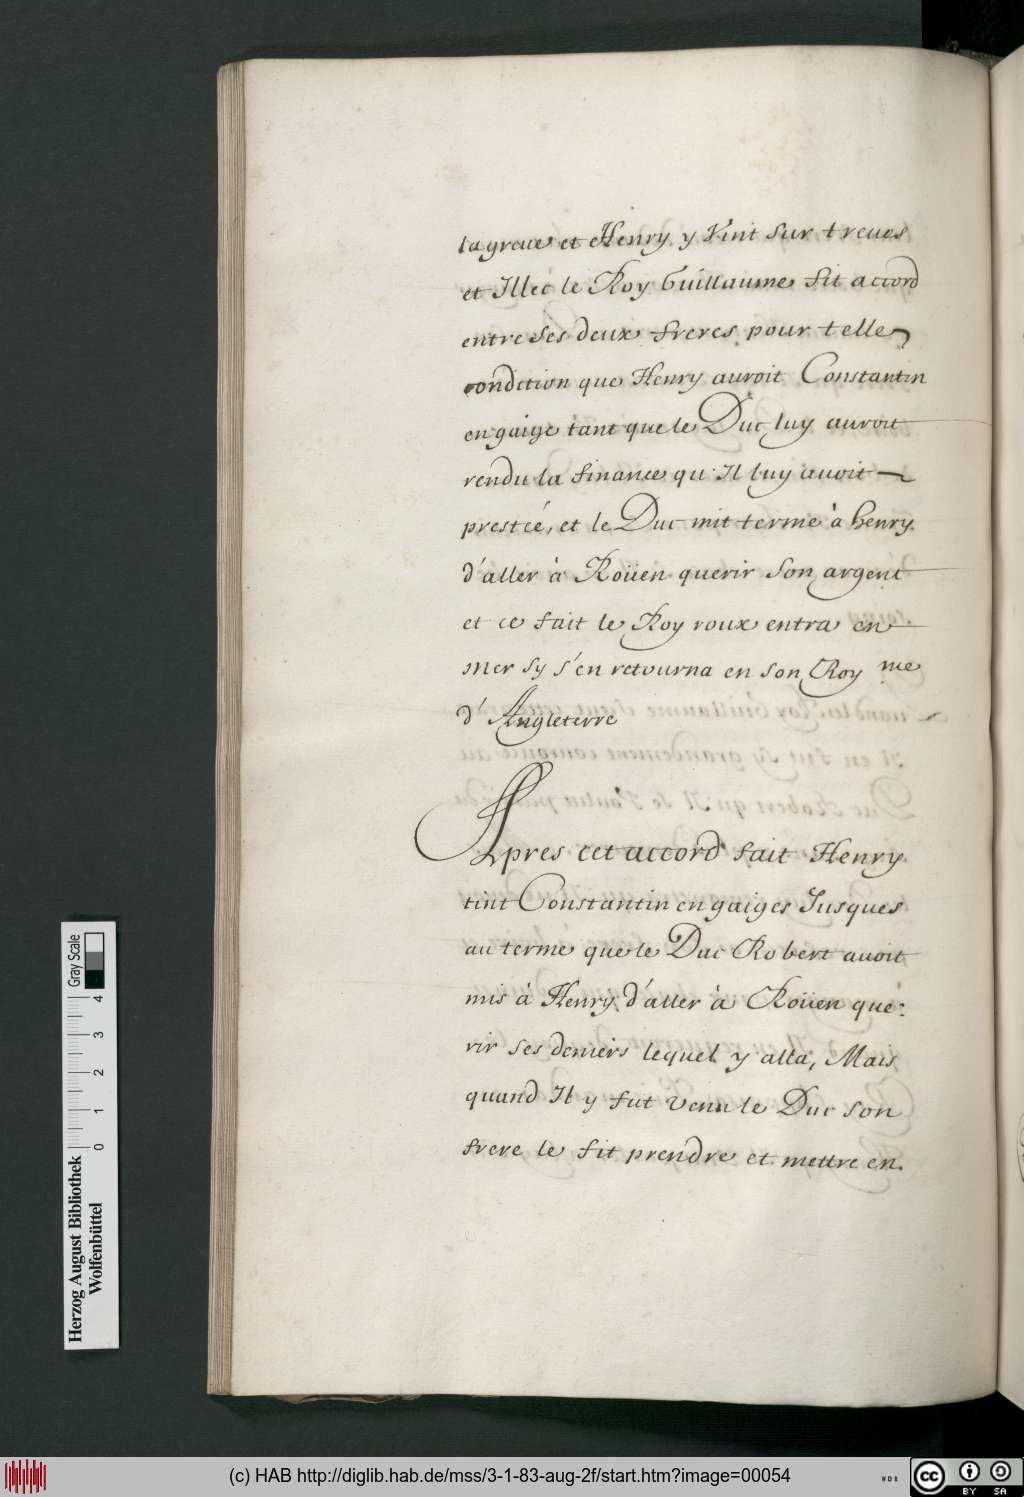 la greue et Henry y Vint sur treues
et Illec le Roy Guillaume fit accord
entre ses deux freres pour telle
condition que Henry auroit Constantin
en gaige tant que le Duc luy auroit
rendu la finance qu'Il luy auoit
prestée, et le Duc mit terme à henry
d'aller à Roüen querir son argent
et ce fait le Roy roux entra en
mer sy s'en retourna en son Roy me
d'Angleterre
Apres cet accord fait Henry
tint Constantin en gaiges Jusques
au terme que le Duc Robert auoit
mis à Henry d'aller à Roüen que:
rir ses deniers lequel y alla, Mais
quand Il y fut venu le Duc son
frere le fit prendre et mettre en
Gray Scale
4 3 2 1 0
Herzog August Bibliothek
Wolfenbüttel
(c) HAB http://diglib.hab.de/mss/3-1-83-aug-2f/start.htm?image=00054
WDB
cc BY SA